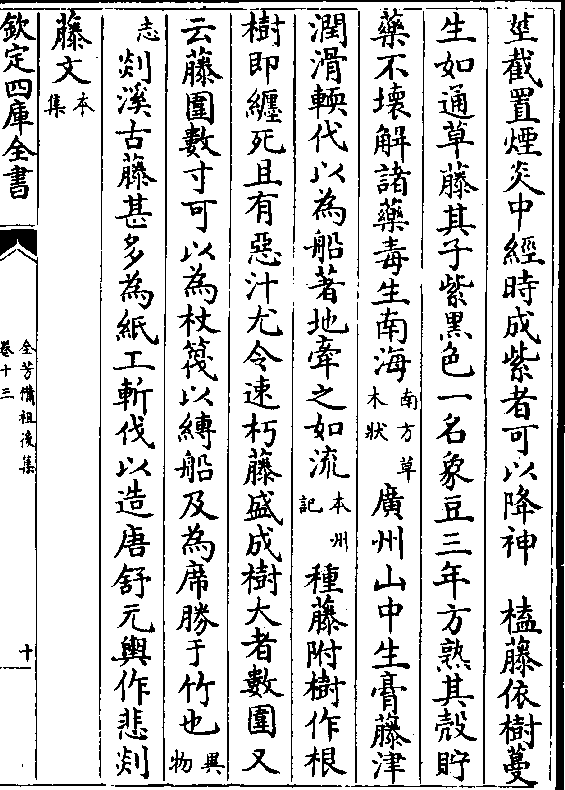 莖截置煙炎中經時成紫者可以降神　榼藤依樹蔓
生如通草藤其子紫黑色一名象豆三年方熟其殻貯
藥不壞解諸藥毒生南海南方草木狀　廣州山中生膏藤津
潤滑輭代以為船著地牽之如流本州記　種藤附樹作根
樹即纏死且有惡汁尤令速朽藤盛成樹大者數圍又
云藤圍數寸可以為杖篾以縛船及為席勝于竹也異物
志　剡溪古藤甚多為紙工斬伐以造唐舒元輿作悲剡
藤文本集
欽定四庫全書
全芳備祖後集
卷十三
十